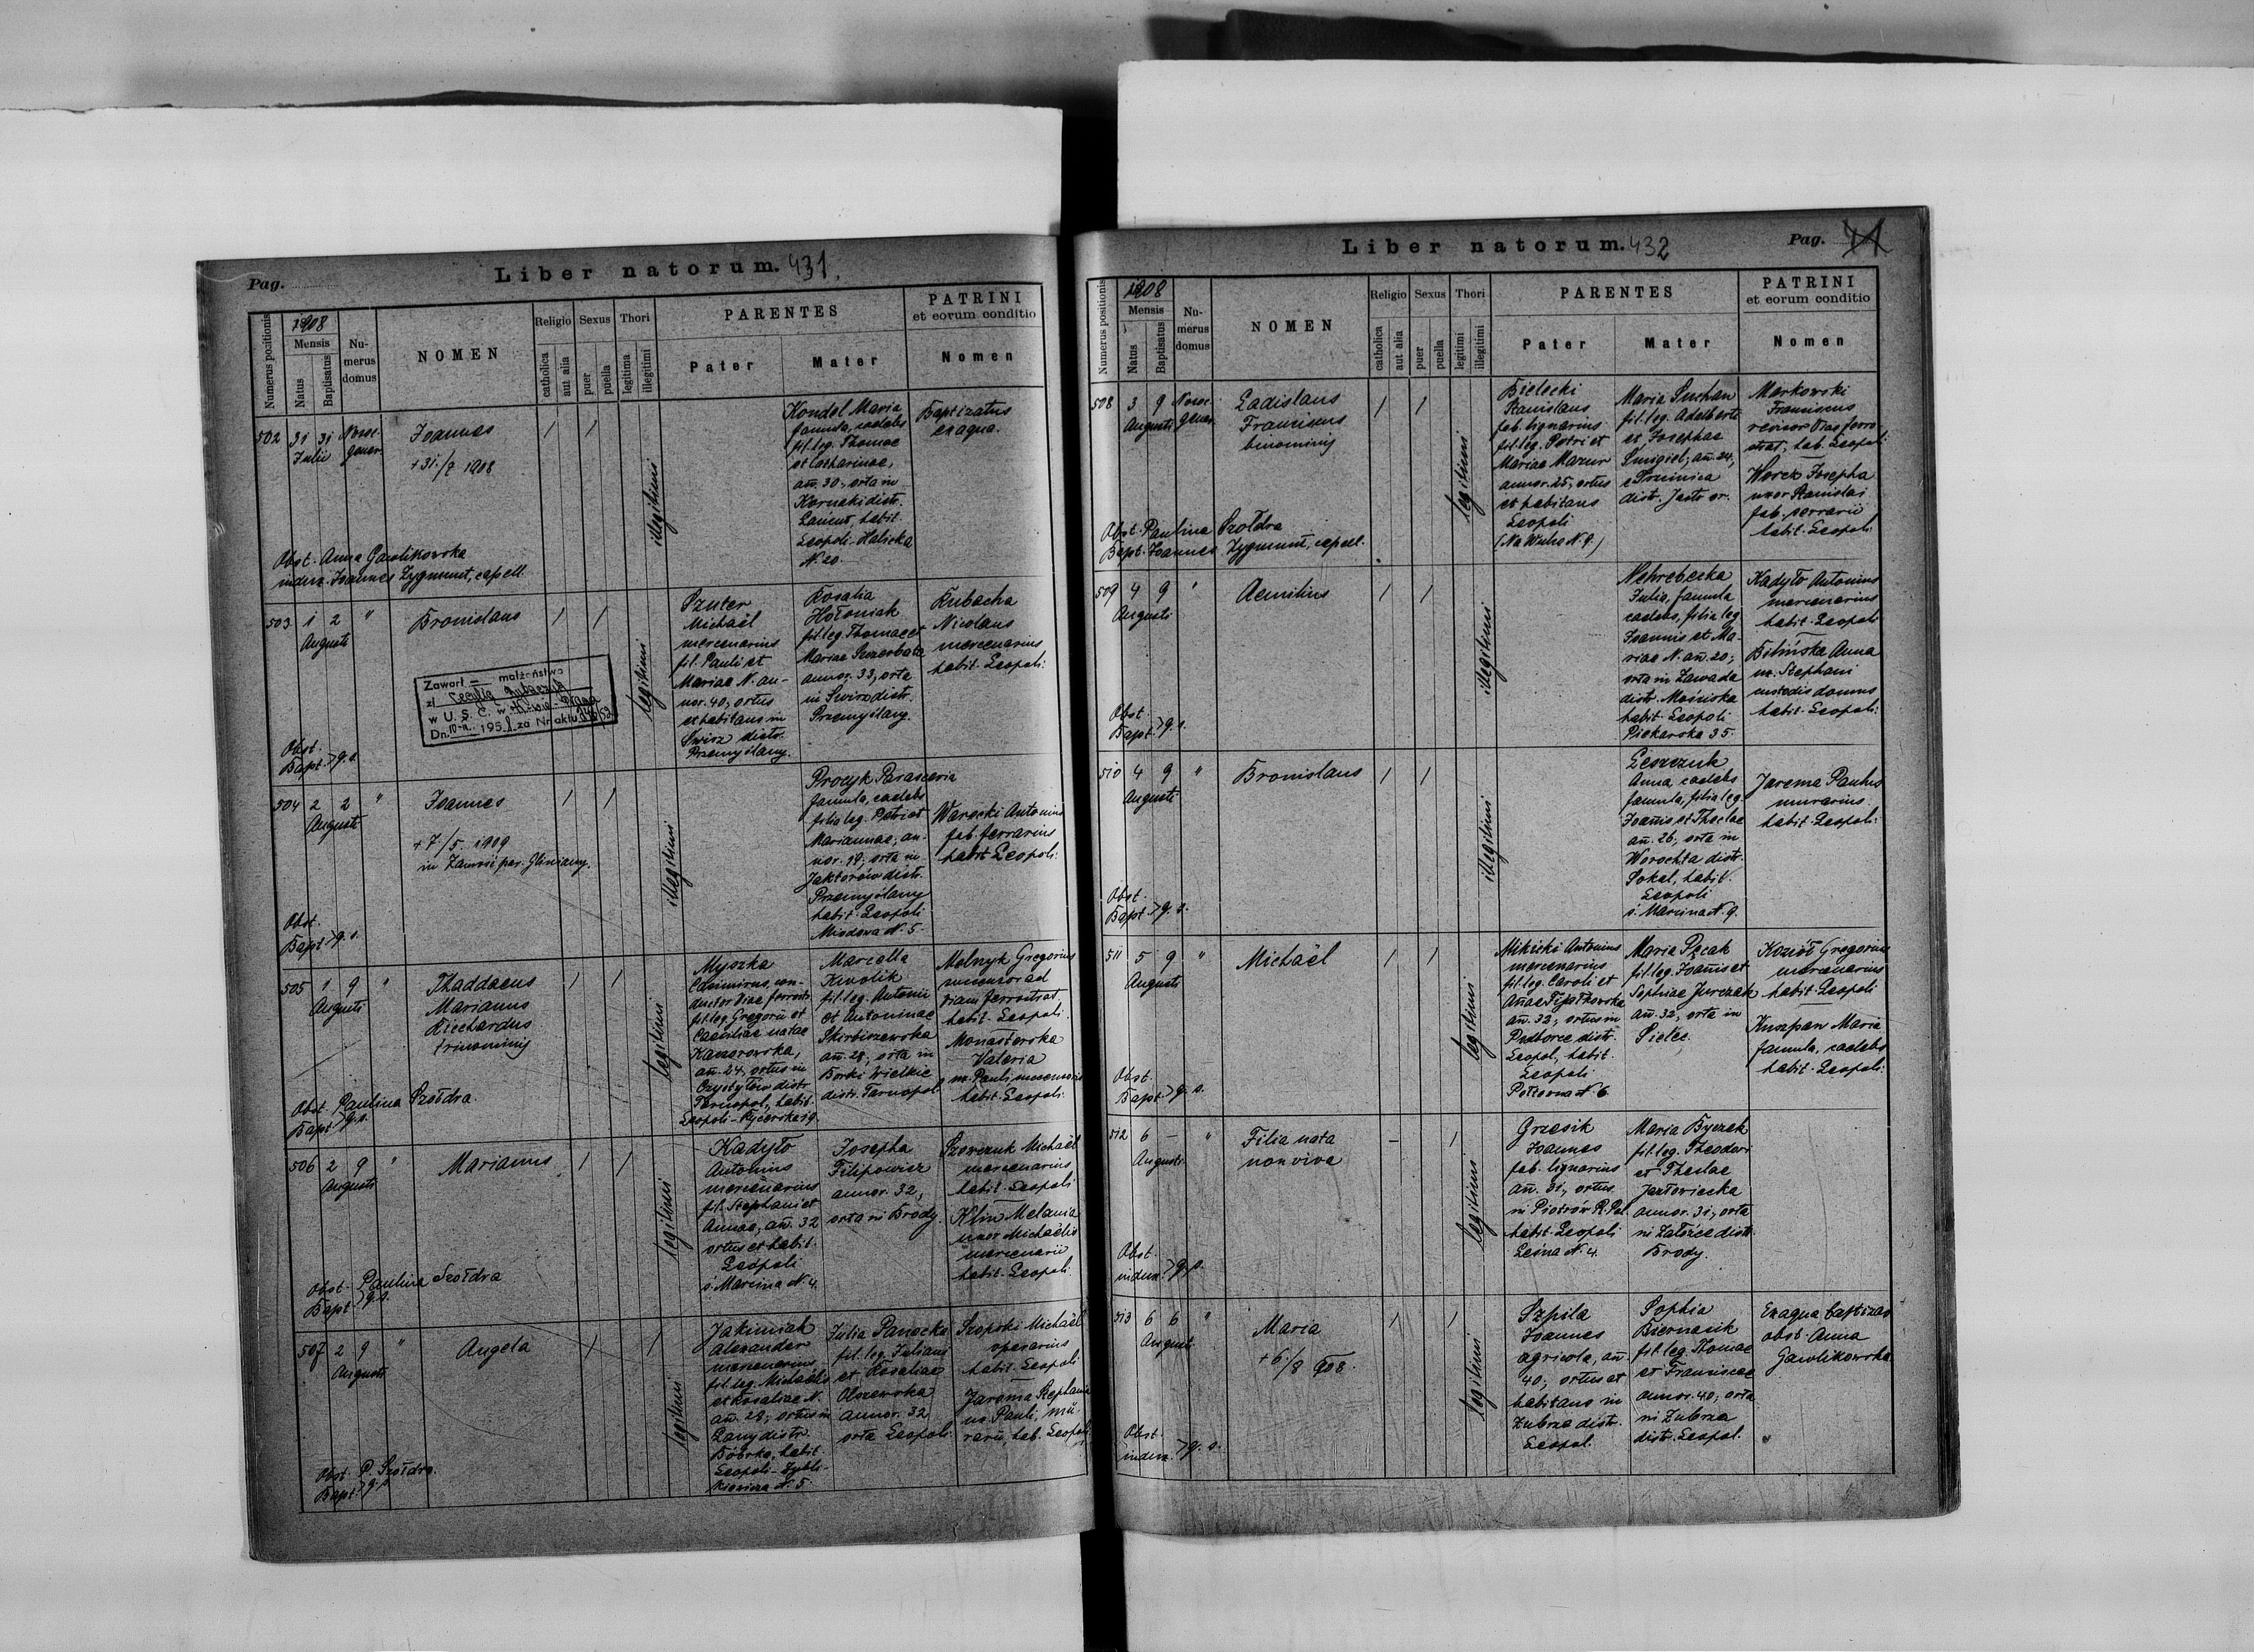 Pag.
Liber natorum. 431.
Numerus positionis
1908
Mensis
Natus
Baptisatus
Numerus domus
NOMEN
Religio
catholica
aut alia
Sexus
puer
puella
Thori
legitima
illegitimi
PARENTES
Pater
Mater
PATRINI
et eorum conditio
Nomen
502
31 31
Julii
Nosoc.
gener.
Joannes
+ 31./7 1908
illegitimi
Kondol Maria
famula, caelebs
fil. leg. Thomae
et Catharinae,
añ. 30, orta in
Kornaki distr.
Łańcut, habit.
Leopoli-Halicka
N. 20.
Baptizatus
ex aqua.
Obst. Anna Gawlikowska
indux. Joannes Zygmunt, capell.
503
1 2
Augusti
"
Bronislaus
legitimi
Szuter
Michaël
mercenarius
fil. Pauli et
Mariae N. an-
nor. 40, ortus
et habitans in
Świrz distr.
Przemyślany.
Rosalia
Hołoniak
fil. leg. Thomae et
Mariae Szczerbata
annor. 33, orta
in Świrz distr.
Przemyślany.
Kubacha
Nicolaus
mercenarius
habit. Leopoli.
Zawarł małżeństwo
z Cecylią
w U. S. C. w
Dn. 195 za Nr aktu
Obst.
Bapt. > q. s.
504
2 2
Augusti
"
Joannes
+ 7./5. 1909
in Zamoście par. Gliniany.
illegitimi
Procyk Parascevia
famula, caelebs
filia leg. Petri et
Mariannae, an-
nor. 18, orta in
Jaktorów distr.
Przemyślany
habit. Leopoli
Miodowa N. 5.
Warocki Antonius
fab. ferrarius
habit. Leopoli.
Obst.
Bapt. > q. s.
505
1 9
Augusti
"
Thaddaeus
Marianus
Ricchardus
trinominis
legitimi
Myszka
Casimirus, con-
ductor viae ferratae
fil. leg. Gregorii et
Caeciliae natae
Kaczorowska,
añ. 24, ortus in
Czystyłów distr.
Tarnopol, habit.
Leopoli-Rycerska 19.
Marcella
Kwolik
fil. leg. Antonii
et Antoninae
Skirbiszewska
añ. 28, orta in
Borki Wielkie
distr. Tarnopol
Melnyk Gregorius
ad
viam ferrostrat.
habit. Leopoli.
Monastorska
Valeria
ux. Pauli
habit. Leopoli.
Obst. Paulina Szołdra.
Bapt > q. s.
506
2 9
Augusti
"
Marianus
legitimi
Kadyło
Antonius
mercenarius
fil. Stephani et
Annae, añ. 32
ortus et habit.
Leopoli
ś. Marcina N. 4.
Josepha
Filipowicz
annor. 32,
orta in Brody.
Szewczuk Michaël
mercenarius
habit. Leopoli
Klim Melania
uxor Michaëlis
mercenarii
habit. Leopoli.
Obst. Paulina Szołdra
Bapt > q. s.
507
2 9
Augusti
"
Angela
legitimi
Jakimiak
Alexander
mercenarius
fil. leg. Michaëlis
et Rosaliae N.
añ. 28, ortus in
Łany distr.
Bóbrka, habit.
Leopoli-Zybli-
kiewicza N. 5.
Julia Panocka
fil. leg. Juliani
et Rosaliae
Olszewska
annor. 32
orta Leopoli.
Szopski Michaël
operarius
habit. Leopoli
Jarema Stephania
ux. Pauli, mu-
rarii, hab. Leopoli
Obst. P. Szołdra.
Bapt > q. s.
Liber natorum. 432
Pag. 41
Numerus positionis
1908
Mensis
Natus
Baptisatus
Numerus domus
NOMEN
Religio
catholica
aut alia
Sexus
puer
puella
Thori
legitimi
illegitimi
PARENTES
Pater
Mater
PATRINI
et eorum conditio
Nomen
508
3 9
Augusti
Nosoc.
gener.
Ladislaus
Franciscus
binominis
legitimi
Bielecki
Stanislaus
fab. lignarius
fil. leg. Petri et
Mariae Mazur
annor. 25, ortus
et habitans
Leopoli
(Na Wulce N. 9.)
Maria Suchan
fil. leg. Adalberti
et Josephae
Smigiel, añ. 24,
e Trzcinica
distr. Jasło or.
Markowski
Franciscus
revisor viae ferro
strat., hab. Leopoli
Worek Josepha
uxor Stanislai
fab. serrarii
habit. Leopoli.
Obst. Paulina Szołdra
Bapt. Joannes Zygmunt, capell.
509
4 9
Augusti
"
Aemilius
illegitimi
Nehrebecka
Julia, famula
caelebs, filia leg.
Joannis et Ma-
riae N. añ. 20,
orta in Zawada
distr. Mościska
habit. Leopoli
Piekarska 35.
Kadyło Antonius
mercenarius
habit. Leopoli
Bilińska Anna
ux. Stephani
custodis domus
habit. Leopoli.
Obst.
Bapt. > q. s.
510
4 9
Augusti
"
Bronislaus
illegitimi
Leszczuk
Anna caelebs
famula, filia leg.
Joañis et Theclae
añ. 26, orta in
Worochta distr.
Sokal, habit.
Leopoli
ś. Marcina N. 9.
Jarema Paulus
murarius
habit. Leopoli.
Obst.
Bapt. > q. s.
511
5 9
Augusti
"
Michaël
legitimi
Mikicki Antonius
mercenarius
fil. leg. Caroli et
Añae
añ. 32, ortus in
Podborce distr.
Leopol, habit.
Leopoli
N. 6
Maria Pęcak
fil. leg. Joañis et
Sophiae Jurczak
añ. 32, orta in
Sielec.
Kozioł Gregorius
mercenarius
habit. Leopoli
Kuszpan Maria
famula, caelebs
habit. Leopoli.
Obst.
Bapt. > q. s.
512
6 –
Augusti
"
Filia nata
non viva
legitimi
Grzesik
Joannes
fab. lignarius
añ. 31, ortus
in Piotrów R. Pol.
habit. Leopoli
Leśna N. 4.
Maria Byczek
fil. leg. Theodori
et Theclae
Jazłowiecka
annor. 31, orta
in Załoźce distr.
Brody.
Obst.
indux. > q. s.
513
6 6
August.
"
Maria
+ 6./8 908.
legitimi
Szpila
Joannes
agricola, añ.
40, ortus et
habitans in
Zubrza distr.
Leopol.
Sophia
Biernacik
fil. leg. Thomae
et Franciscae
annor. 40, orta
in Zubrza
distr. Leopol.
Ex aqua baptizav.
obst. Anna
Gawlikowska
Obst.
indux. > q. s.